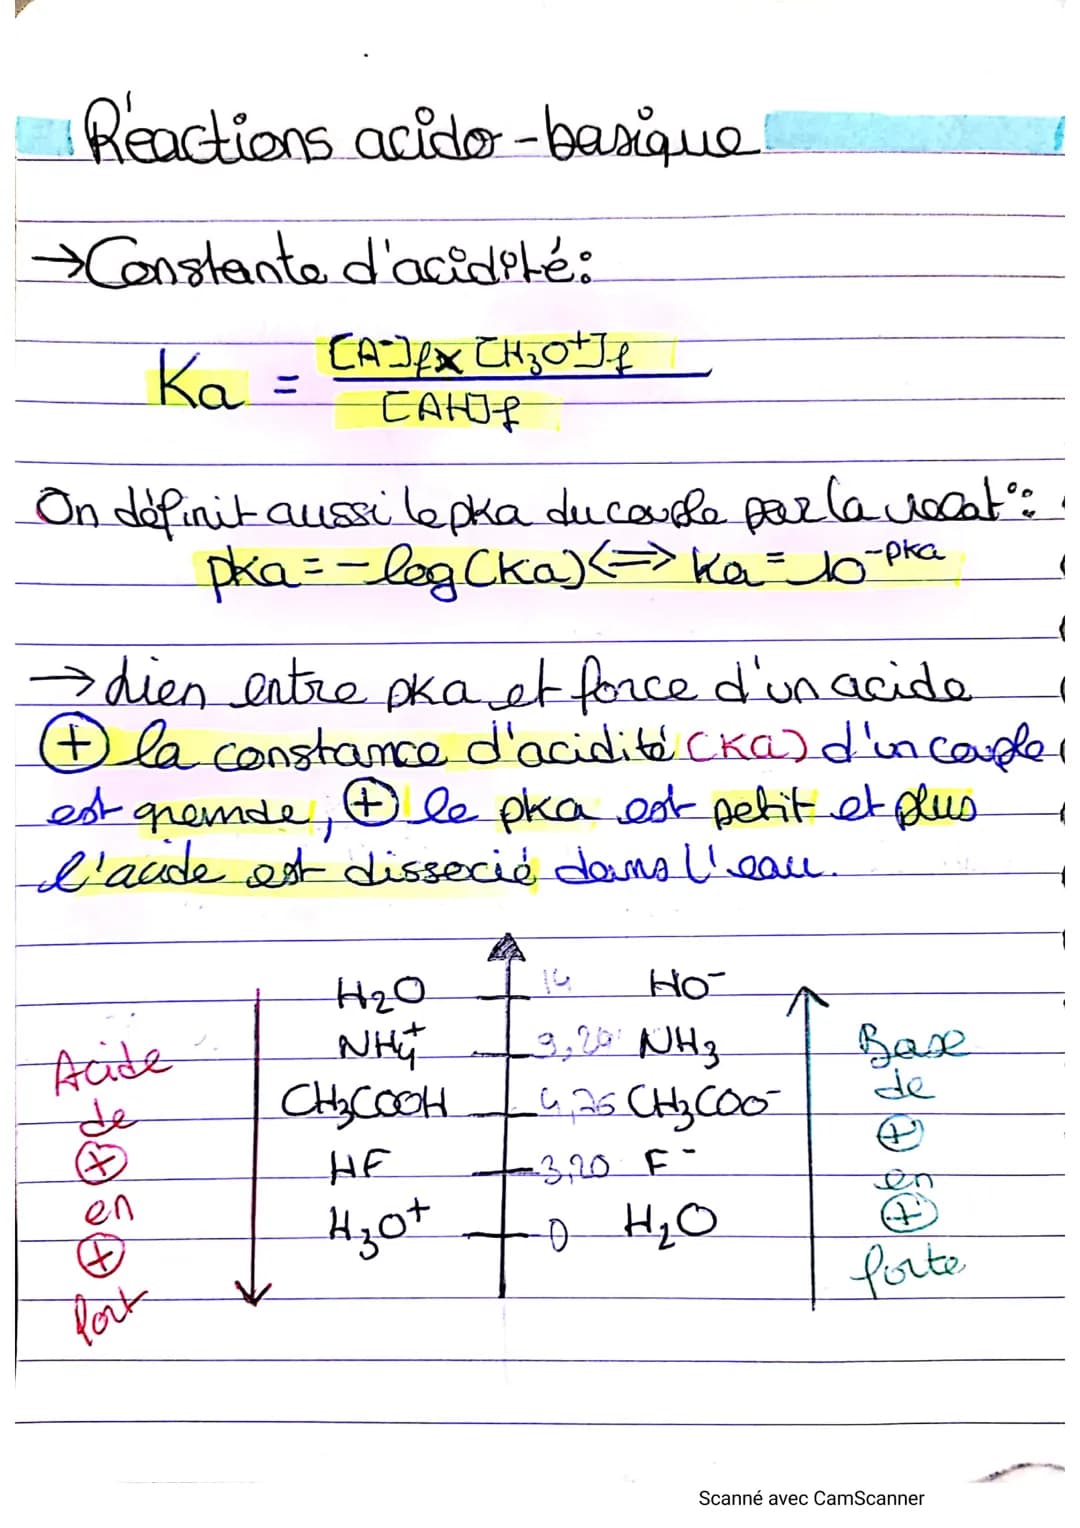 Réactions acido-basique
→Constante d'acidité:
Ka = [A⁻]f x [H₃O⁺]f
[AH]f
On définit aussi le pka du couple par la relat°:
pka = -log(Ka) <=> Ka = 10^-pka
→ Lien entre pKa et force d'un acide
⊕ la constance d'acidité (Ka) d'un couple
est grande, ⊕ le pka est petit et plus
l'acide est dissocié dans l'eau.
H₂O 14 HO⁻
NH₄⁺ 9,20 NH₃
CH₃COOH 4,75 CH₃COO⁻
HF 3,20 F⁻
H₃O⁺ 0 H₂O
Acide
de
⊕
en
⊕
fort
Base
de
⊕
en
⊕
forte
Scanné avec CamScanner